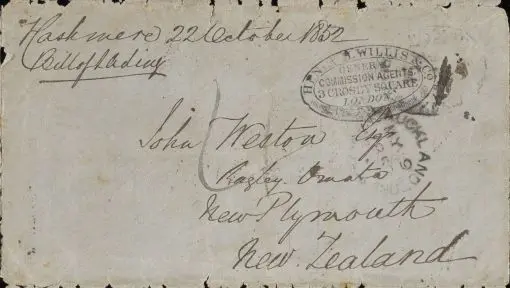 Kashmere 22 October 1852
Bill of Lading
HENRY H. WILLIS & Co
GENERAL
COMMISSION AGENTS
3 CROSBY SQUARE
LONDON
John Weston Esq
Ragley Omata
New Plymouth
New Zealand
AUCKLAND
MY 9